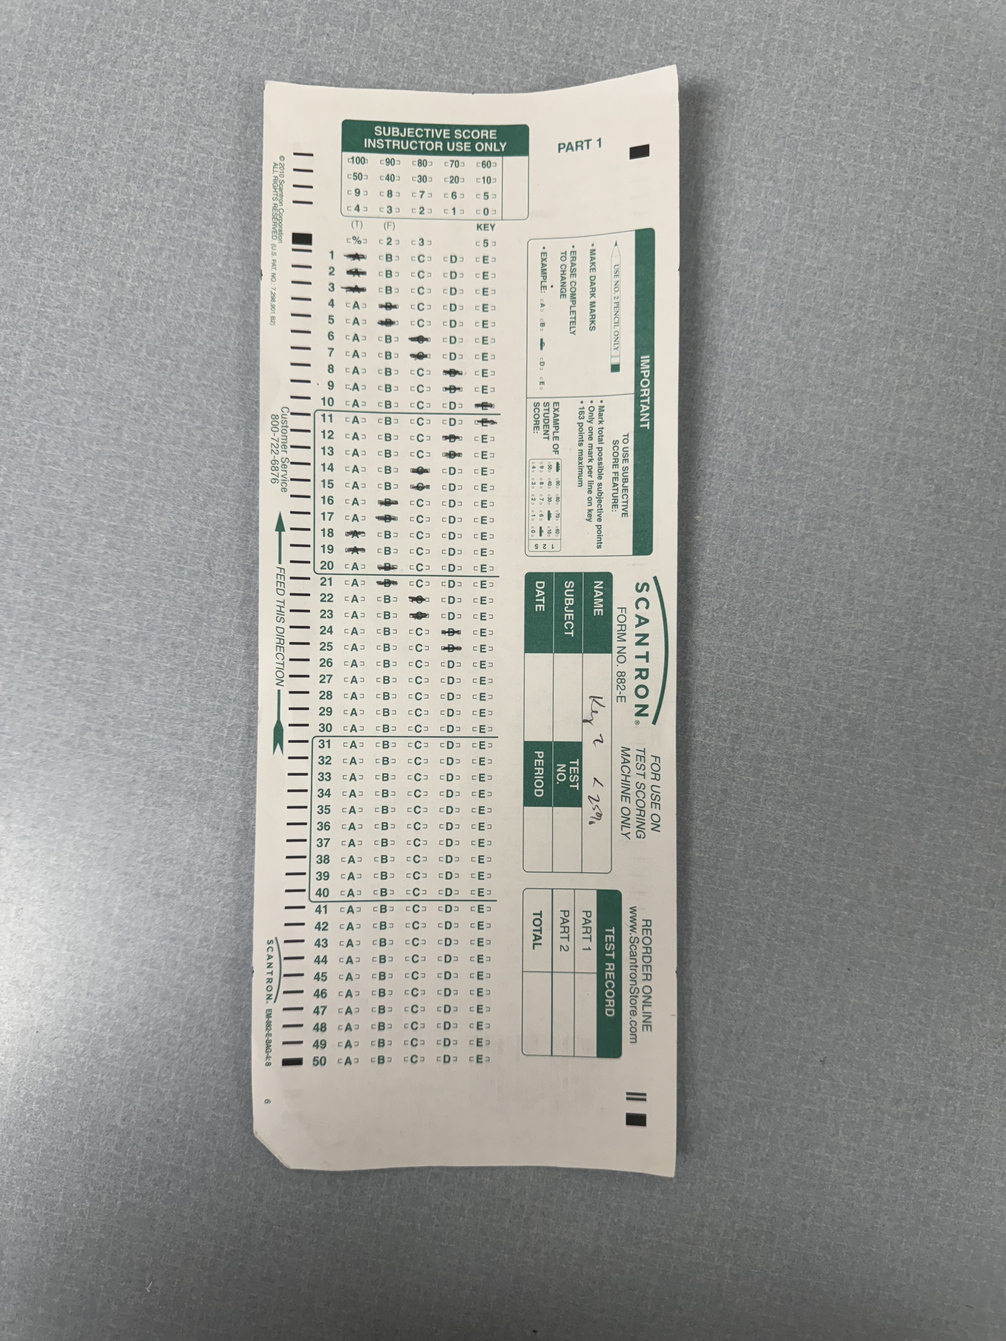 SUBJECTIVE SCORE
INSTRUCTOR USE ONLY
100 90 80 70 60
50 40 30 20 10
9 8 7 6 5
4 3 2 1 0
(T) (F) KEY
% 2 3 5
PART 1
1 B C D E
2 B C D E
3 B C D E
4 A C D E
5 A C D E
6 A B D E
7 A B D E
8 A B C E
9 A B C E
10 A B C D
11 A B C D
12 A B C E
13 A B C E
14 A B D E
15 A B D E
16 A C D E
17 A C D E
18 B C D E
19 B C D E
20 A C D E
21 A C D E
22 A B D E
23 A B D E
24 A B C E
25 A B C E
26 A B C D E
27 A B C D E
28 A B C D E
29 A B C D E
30 A B C D E
31 A B C D E
32 A B C D E
33 A B C D E
34 A B C D E
35 A B C D E
36 A B C D E
37 A B C D E
38 A B C D E
39 A B C D E
40 A B C D E
41 A B C D E
42 A B C D E
43 A B C D E
44 A B C D E
45 A B C D E
46 A B C D E
47 A B C D E
48 A B C D E
49 A B C D E
50 A B C D E
IMPORTANT
USE NO. 2 PENCIL ONLY
• MAKE DARK MARKS
• ERASE COMPLETELY
TO CHANGE
• EXAMPLE: A B D E
TO USE SUBJECTIVE
SCORE FEATURE:
• Mark total possible subjective points
• Only one mark per line on key
• 163 points maximum
EXAMPLE OF
STUDENT
SCORE:
SCANTRON®
FORM NO. 882-E
FOR USE ON
TEST SCORING
MACHINE ONLY
NAME Key 2 < 25%
SUBJECT
TEST
NO.
DATE
PERIOD
REORDER ONLINE
www.ScantronStore.com
TEST RECORD
PART 1
PART 2
TOTAL
© 2010 Scantron Corporation
ALL RIGHTS RESERVED.
Customer Service
800-722-6876
FEED THIS DIRECTION
SCANTRON.
6